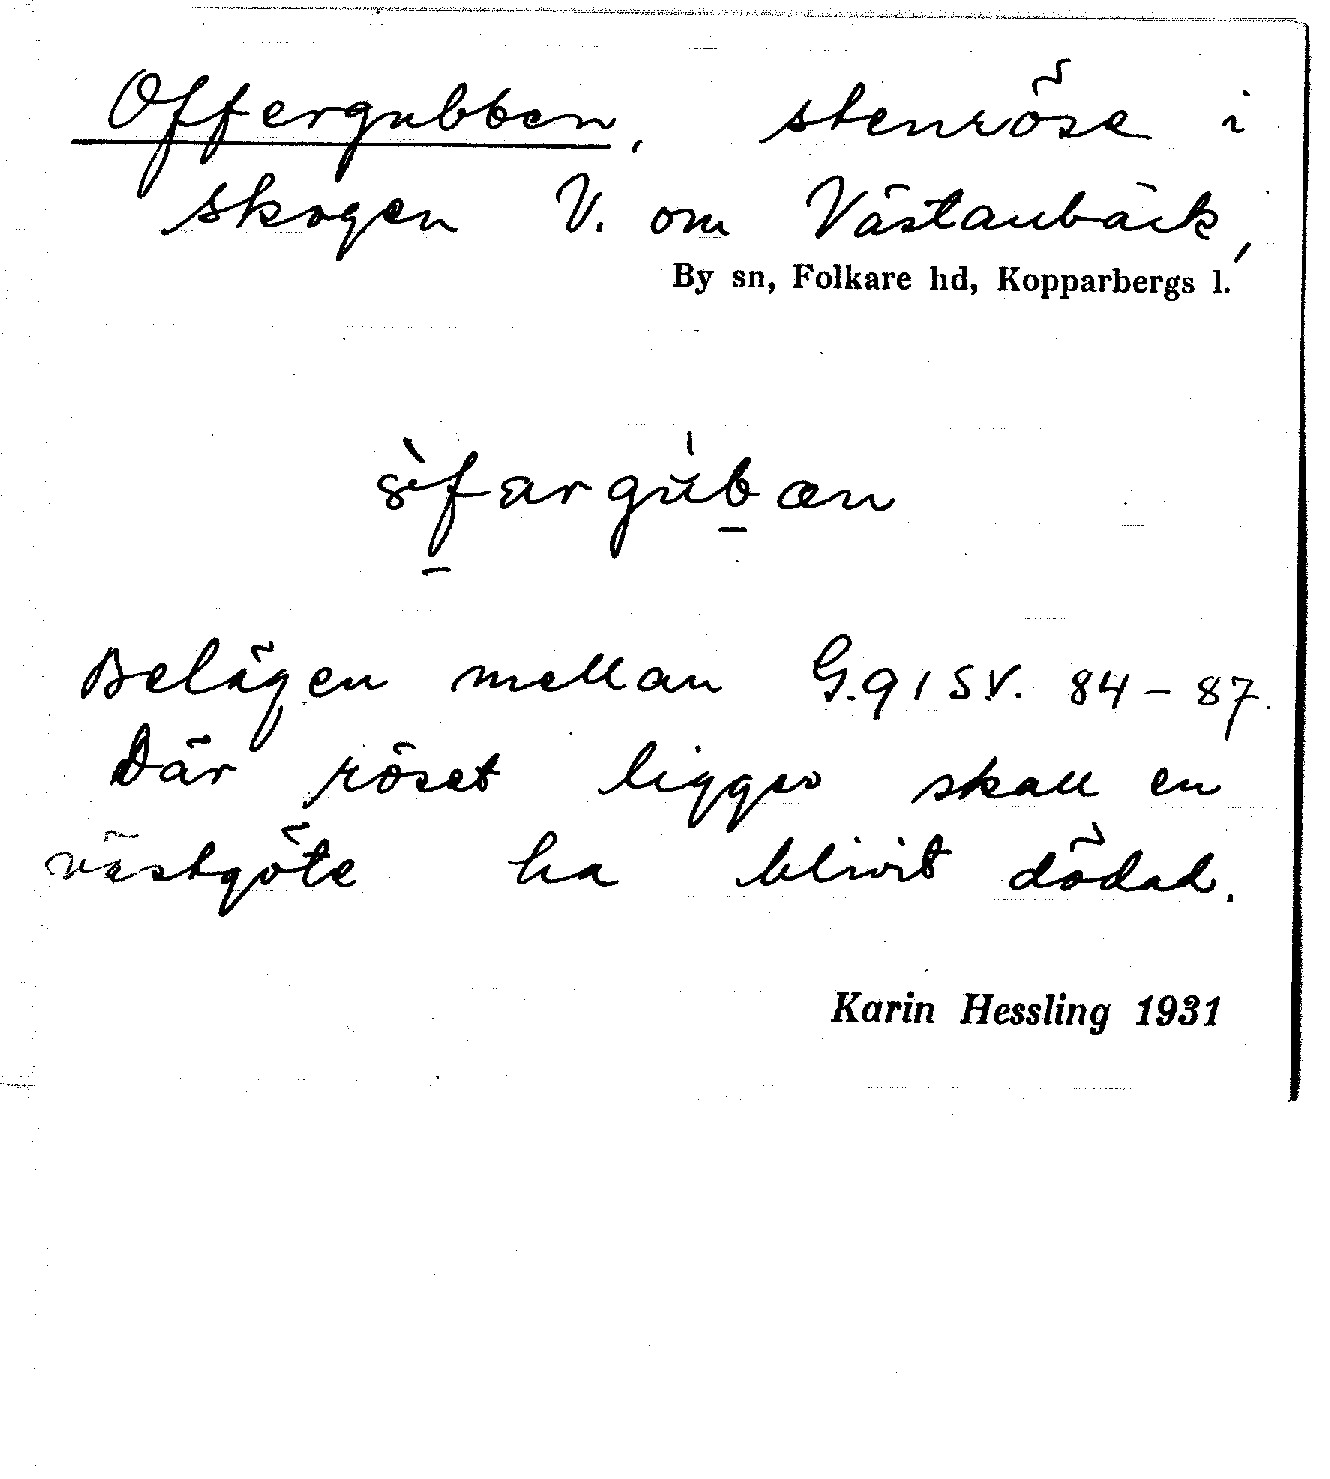 Offergubben, stenröse i
skogen V. om Västanbäck,
By sn, Folkare hd, Kopparbergs l.
Belägen mellan G.91 SV. 84 – 87.
Där röset ligger skall en
västgöte ha blivit dödad.
Karin Hessling 1931